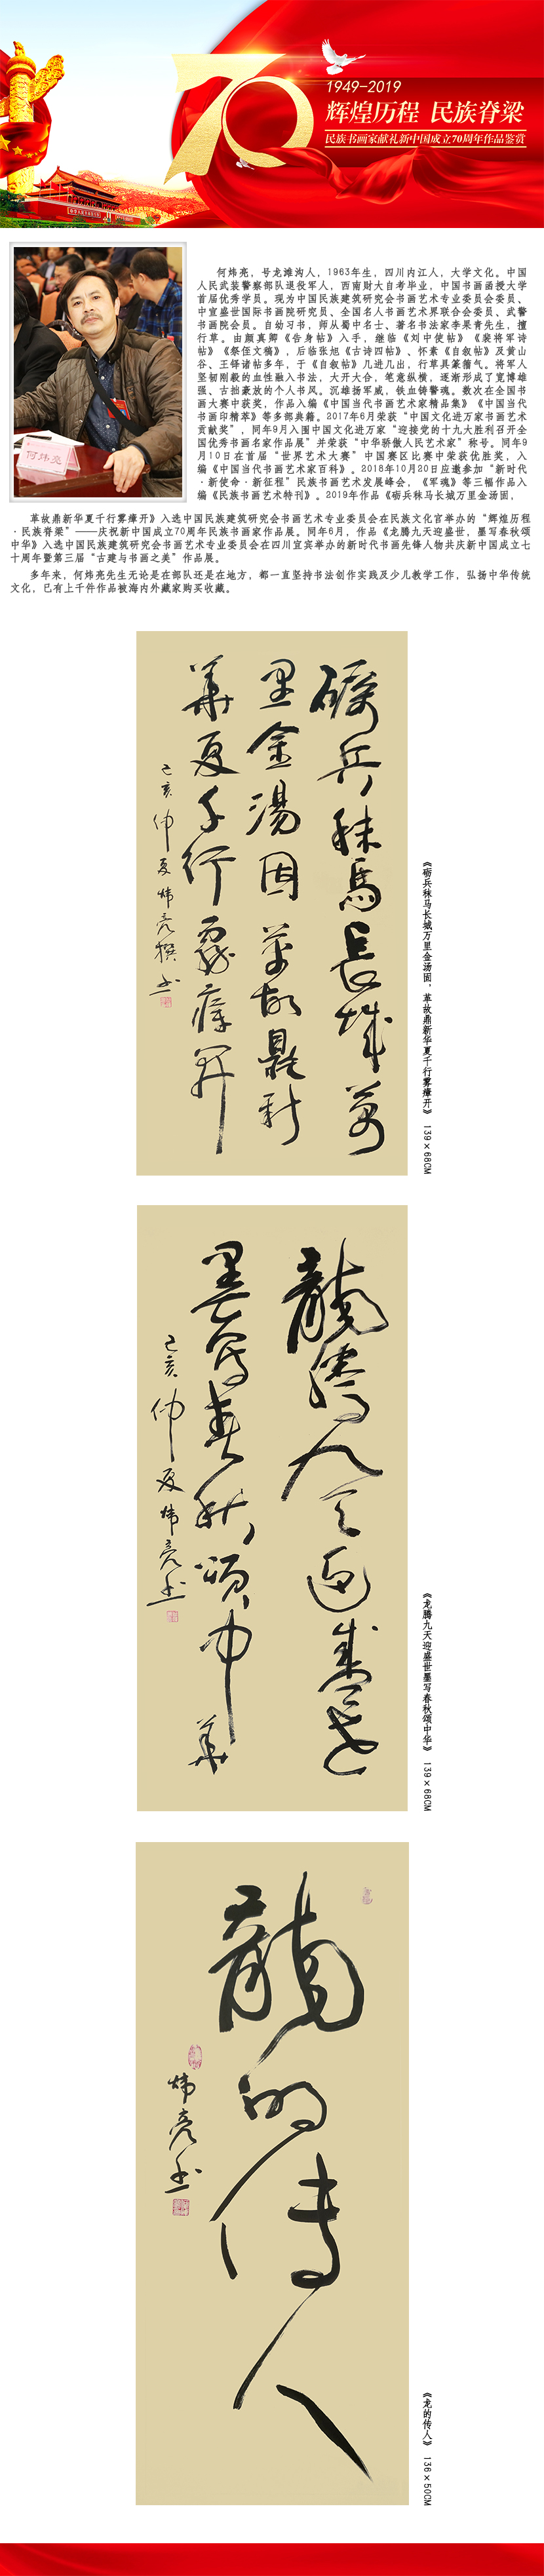 1949-2019
辉煌历程 民族脊梁
民族书画家献礼新中国成立70周年作品鉴赏
何炜亮
何炜亮，号龙滩沟人，1963年生，四川内江人，大学文化。中国
人民武装警察部队退役军人，西南财大自考毕业，中国书画函授大学
首届优秀学员。现为中国民族建筑研究会书画艺术专业委员会委员、
中宣盛世国际书画院研究员、全国名人书画艺术界联合会委员、武警
书画院会员。自幼习书，师从蜀中名士、著名书法家李果青先生，擅
行草。由颜真卿《告身帖》入手，继临《刘中使帖》《裴将军诗
帖》《祭侄文稿》，后临张旭《古诗四帖》、怀素《自叙帖》及黄山
谷、王铎诸帖多年，于《自叙帖》几进几出，行草具篆籀气。将军人
坚韧刚毅的血性融入书法，大开大合，笔意纵横，逐渐形成了宽博雄
强、古拙豪放的个人书风。沉雄扬军威，铁血铸警魂。数次在全国书
画大赛中获奖，作品入编《中国当代书画艺术家精品集》《中国当代
书画印精萃》等多部典籍。2017年6月荣获“中国文化进万家书画艺术
贡献奖”，同年9月入围中国文化进万家“迎接党的十九大胜利召开全
国优秀书画名家作品展”并荣获“中华骄傲人民艺术家”称号。同年9
月10日在首届“世界艺术大赛”中国赛区比赛中荣获优胜奖，入
编《中国当代书画艺术家百科》。2018年10月20日应邀参加“新时代
·新使命·新征程”民族书画艺术发展峰会，《军魂》等三幅作品入
编《民族书画艺术特刊》。2019年作品《砺兵秣马长城万里金汤固，
革故鼎新华夏千行雾瘴开》入选中国民族建筑研究会书画艺术专业委员会在民族文化宫举办的“辉煌历程
·民族脊梁”——庆祝新中国成立70周年民族书画家作品展。同年6月，作品《龙腾九天迎盛世，墨写春秋颂
中华》入选中国民族建筑研究会书画艺术专业委员会在四川宜宾举办的新时代书画先锋人物共庆新中国成立七
十周年暨第三届“古建与书画之美”作品展。
多年来，何炜亮先生无论是在部队还是在地方，都一直坚持书法创作实践及少儿教学工作，弘扬中华传统
文化，已有上千件作品被海内外藏家购买收藏。
礪兵秣馬長城萬
里金湯固革故鼎新
華夏千行霧瘴開
己亥仲夏炜亮撰书
《砺兵秣马长城万里金汤固，革故鼎新华夏千行雾瘴开》 139×68CM
龍騰九天迎盛世
墨写春秋頌中華
己亥仲夏炜亮书
《龙腾九天迎盛世墨写春秋颂中华》 139×68CM
龍的传人
炜亮书
《龙的传人》 136×50CM